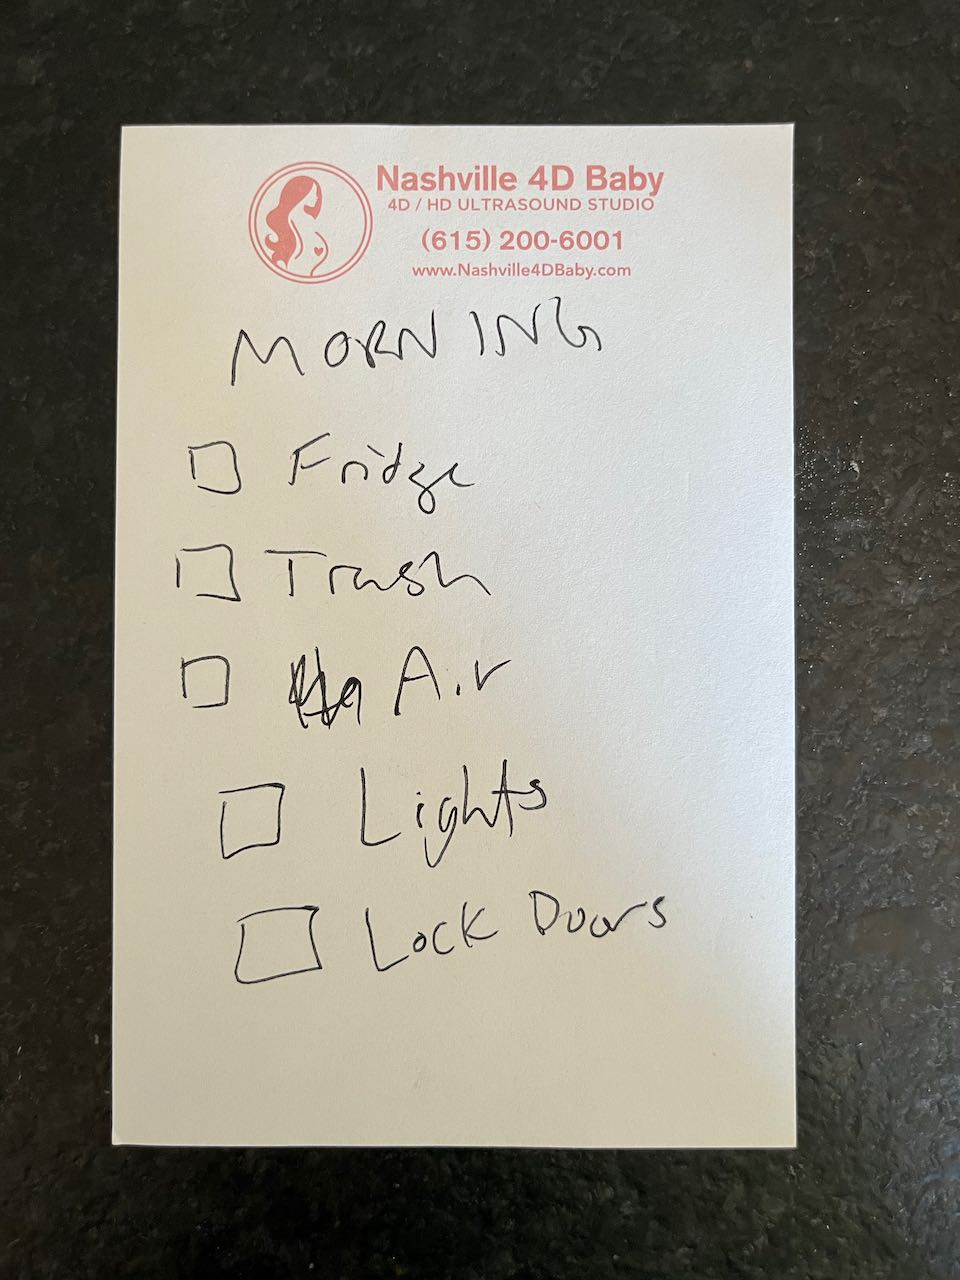 Nashville 4D Baby
4D / HD ULTRASOUND STUDIO
(615) 200-6001
www.Nashville4DBaby.com
MORNING
Fridge
Trash
Air
Lights
Lock Doors